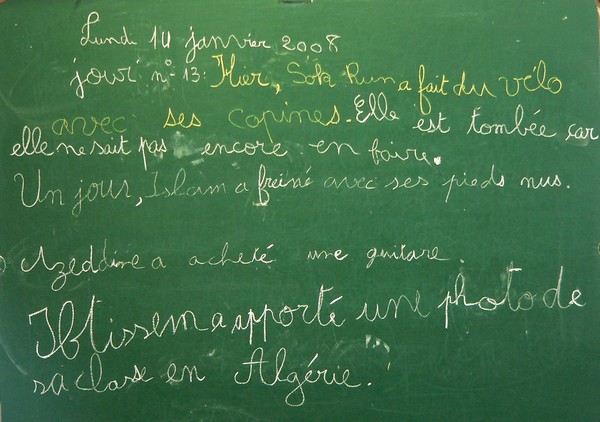 Lundi 14 janvier 2008
jour n° 13: Hier, Sok Run a fait du vélo
avec ses copines. Elle est tombée car
elle ne sait pas encore en faire.
Un jour, Islam a freiné avec ses pieds nus.
Azeddine a acheté une guitare.
Ibtissem a apporté une photo de
sa classe en Algérie.